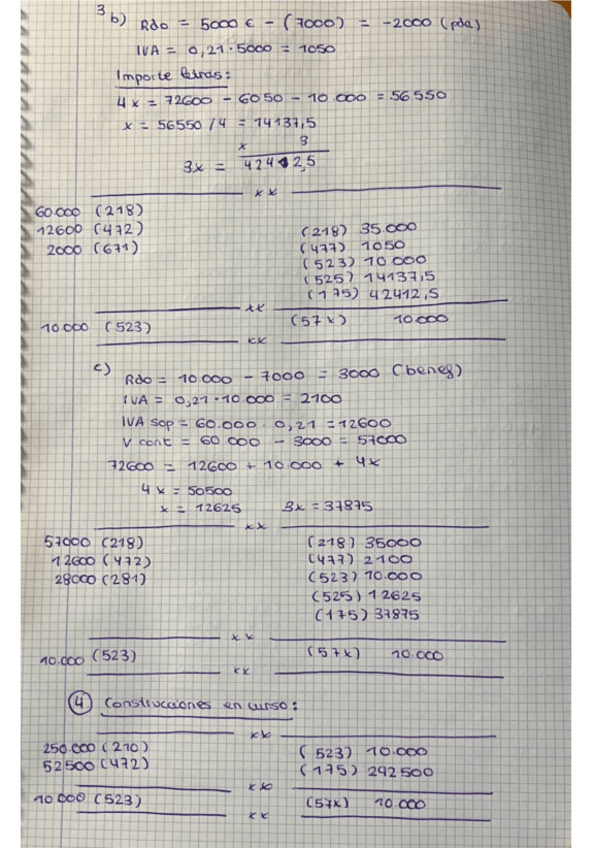 3 b) Rdo = 5000 € - (7000) = -2000 (pda)
IVA = 0,21·5000 = 1050
Importe letras:
4x = 72600 - 6050 - 10.000 = 56550
x = 56550/4 = 14137,5
x 3
3x = 42412,5
xx
60.000 (218)
12600 (472)
2000 (671)
(218) 35.000
(477) 1050
(523) 10.000
(525) 14137,5
(175) 42412,5
xx
10.000 (523) (57x) 10.000
xx
c) Rdo = 10.000 - 7000 = 3000 (benef)
IVA = 0,21·10.000 = 2100
IVA sop = 60.000·0,21 = 12600
V cont = 60.000 - 3000 = 57000
72600 = 12600 + 10.000 + 4x
4x = 50500
x = 12625 3x = 37875
xx
57000 (218) (218) 35000
12600 (472) (477) 2100
28000 (281) (523) 10.000
(525) 12625
(175) 37875
xx
10.000 (523) (57x) 10.000
xx
4 Construcciones en curso:
xx
250.000 (210) (523) 10.000
52500 (472) (175) 292500
xx
10000 (523) (57x) 10.000
xx